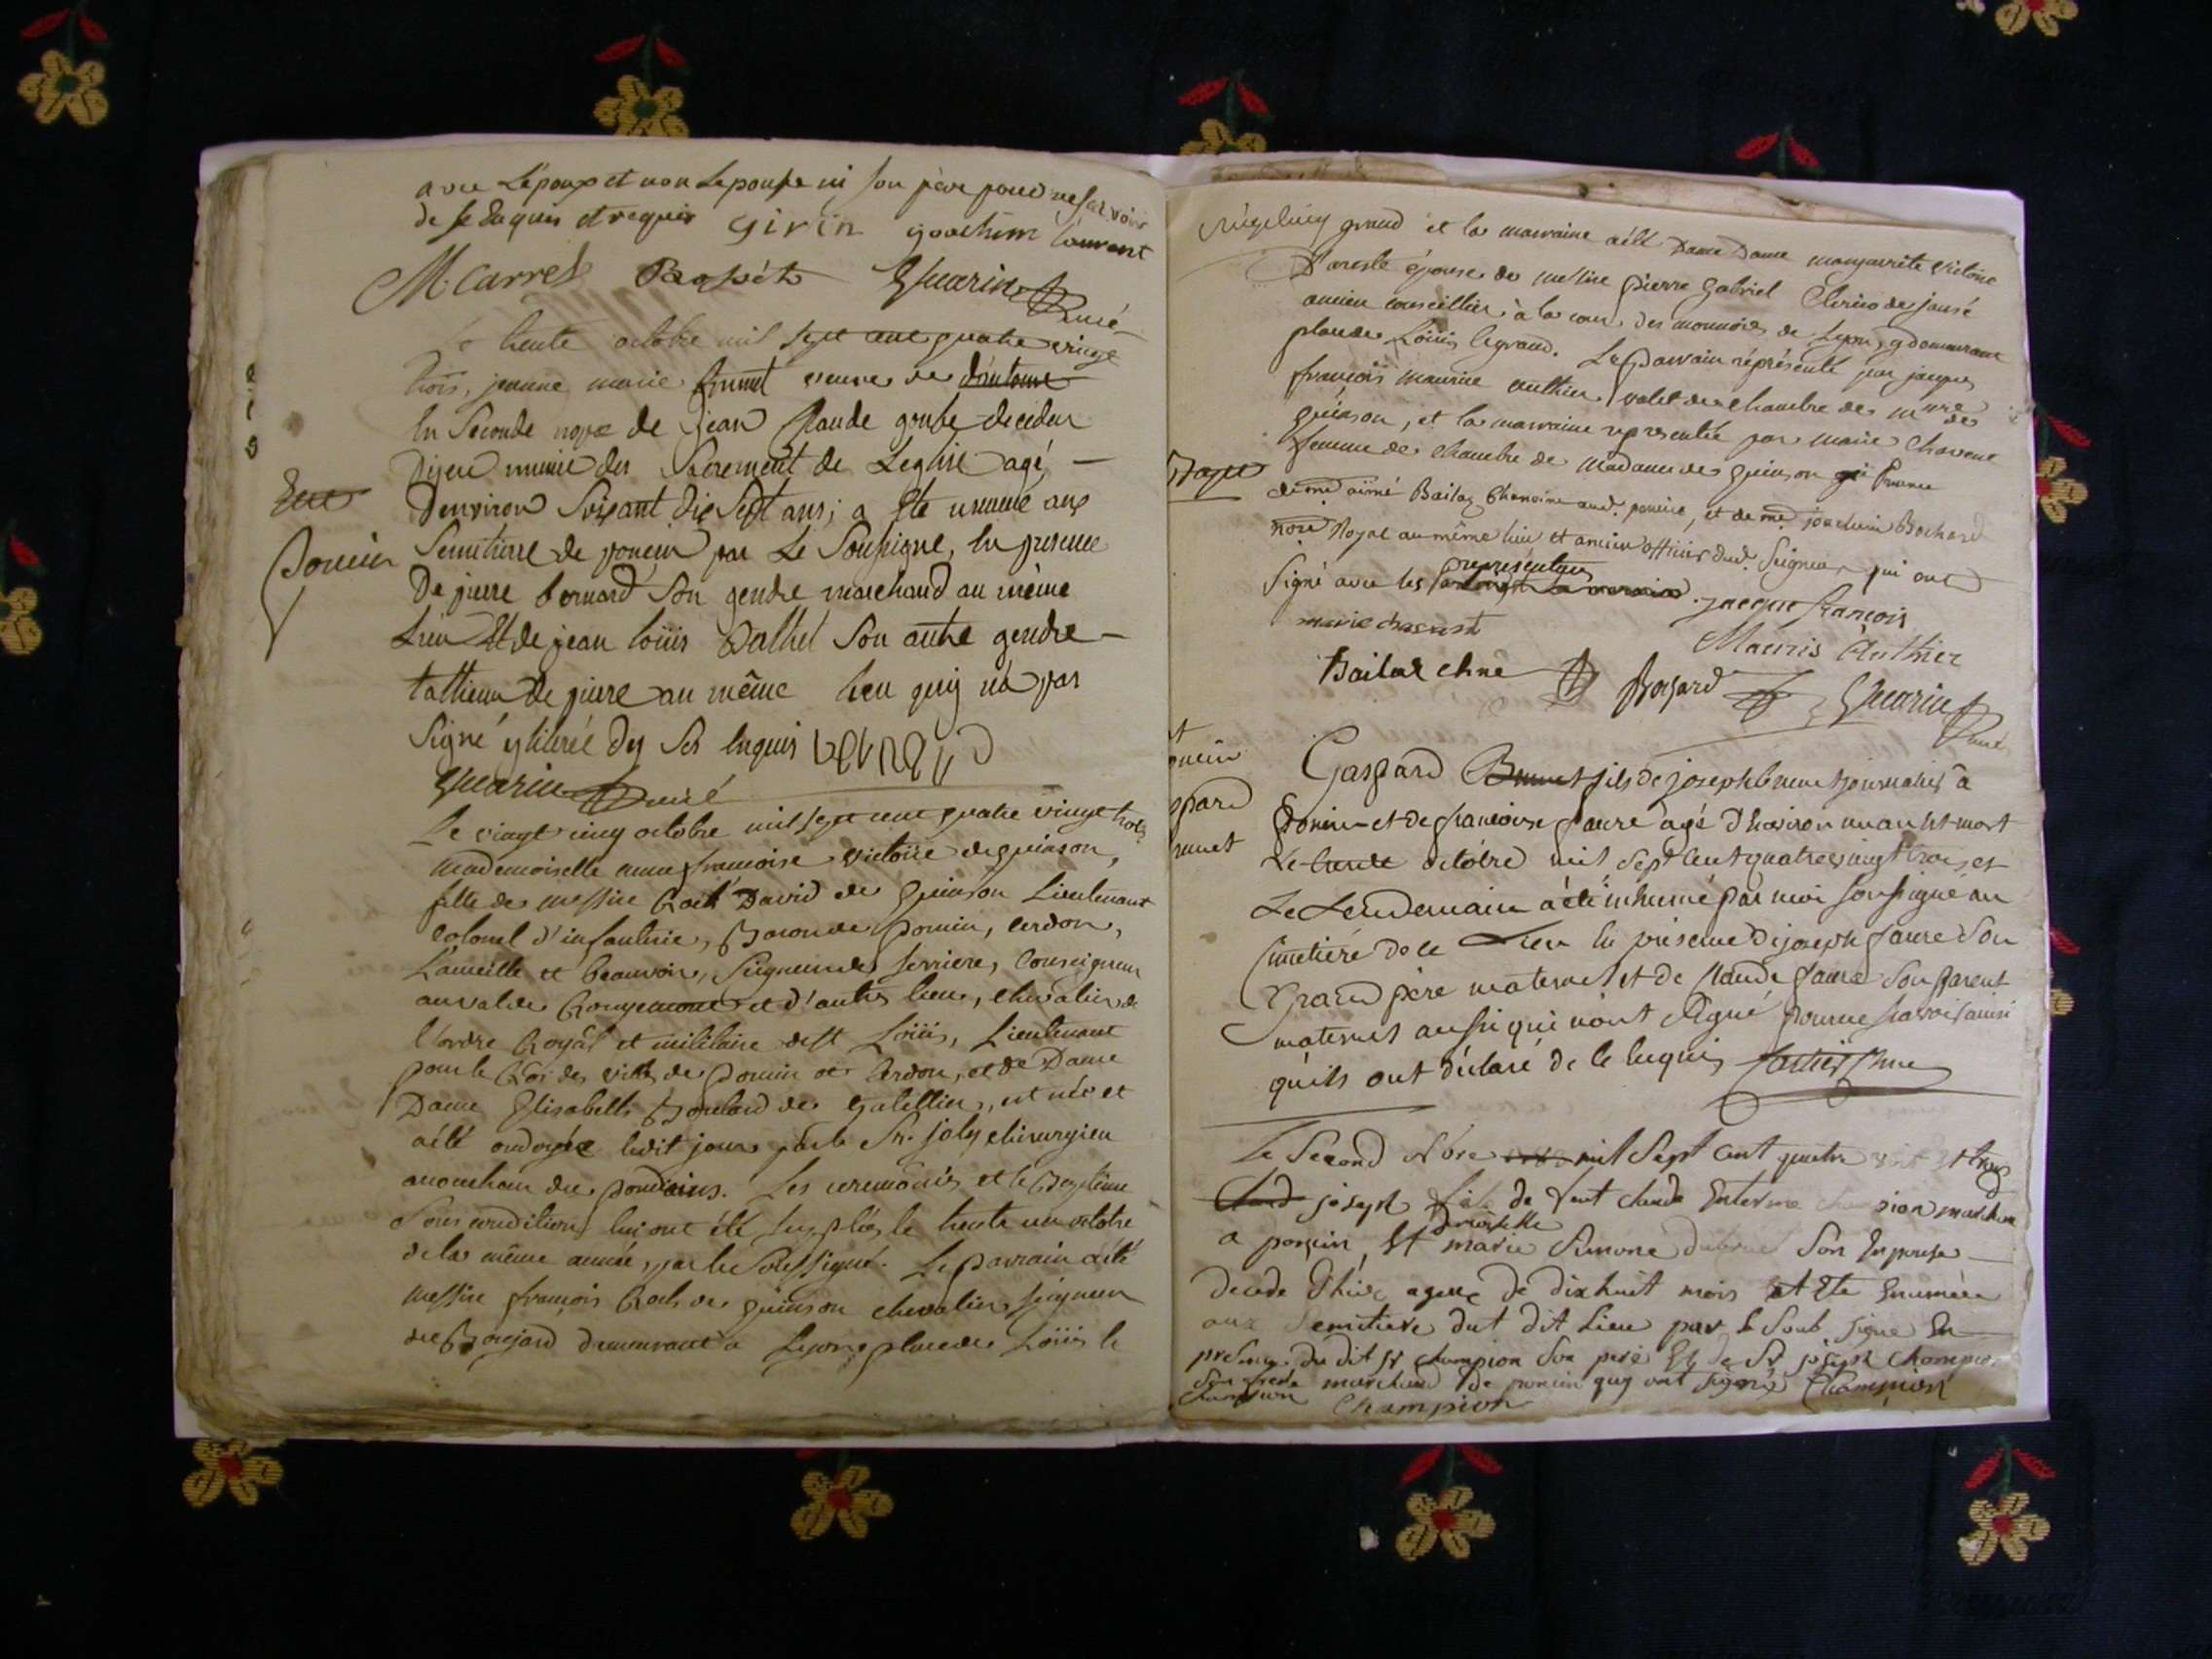 avec L'epoux et non Lepouse ni son père pour ne scavoir
de ce Enquis et requis Girin joachim laurent
M. Carret Guerin curé
Le trente octobre mil sept cent quatre vingt
trois, jeanne marie Brunet veuve de d'antoine
En Seconde nopce de jean Claude goube decedee
hyer munie des Sacrement de Leglise agé
Denviron Soixant dix Sept ans; a Ete inhumé aux
Semitierre de poncin par Le Soussigné, En presence
De pierre bernard Son gendre marchand au même
Lieu Et de jean loüis Son autre gendre
tallieur de pierre au même lieu quy n'a pas
Signé de ce Enquis
Guerin curé
Ent
Poncin
Le vingt cinq octobre mil sept cent quatre vingt trois
mademoiselle anne françoise victoire de quinson,
fille de messire Roch David de Quinson Lieutenant
Colonel d'infanterie, Baron de Poncin, Cerdon,
et beauvoir, Seigneur de Serriere, Conseigneur
au val de Rougemont et d'autres lieux, chevalier de
l'ordre Royal et militaire de St Loüis, Lieutenant
pour le Roi des villes de Poncin et Cerdon, et de Dame
Dame Elisabeth de Gatellier, est née et
a été ondoyée ledit jour par le Sr. joly chirurgien
accoucheur du Poncin. Les ceremonies et le Baptême
Sous condition lui ont été supplées le trente un octobre
de la même année, par le Soussigné. Le parrain a été
messire françois Roch de quinson chevalier seigneur
de demeurant à Lyon place de Loüis le
grand et la marraine a été Dame Dame marguerite victoire
épouse de messire pierre gabriel Clerico de janzé
ancien conseiller à la cour des monnoies de Lyon, y demeurant
place de Loüis le grand. Le Parrain réprésenté par jacques
françois maurice authier valet de chambre de Mr de
quinson, et la marraine representée par marie Chavent
femme de chambre de madame de quinson
de me aimé Bailat Chanoine aud. poncin, et de me joachim Bochard
nore Royal au même lieu et ancien officier dud. Seigneur qui ont
Signé avec les representans. jacque françois
marie chavent Mauris Authier
Bailat chne Guerin curé
Bapt
Gaspard Brunet fils de joseph brunet journalier à
Poncin et de françoise faure agé d'environ un an est mort
Le trente octobre mil sept cent quatre vingt trois et
Le Lendemain a été inhumé par moi soussigné au
Cimetière de ce Lieu En présence de joseph faure son
Grand père maternel et de Claude faure son parent
maternel aussi qui n'ont signé pour ne scavoir ainsi
qu'ils ont déclaré de ce Enquis
poncin
Le Second Nbre mil Sept cent quatre vint et trois
joseph fils de marchand
a poncin, Et marie Simone Son Epouse
decede d'hier agee de dix huit mois Et Ete Enumée
aux Semitiere dut dit Lieu par Le Soub Signe En
presence du dit sr champion Son pere Et de Sr joseph champion
Son frere marchand de poncin quy ont Signé Champion
champion Champion